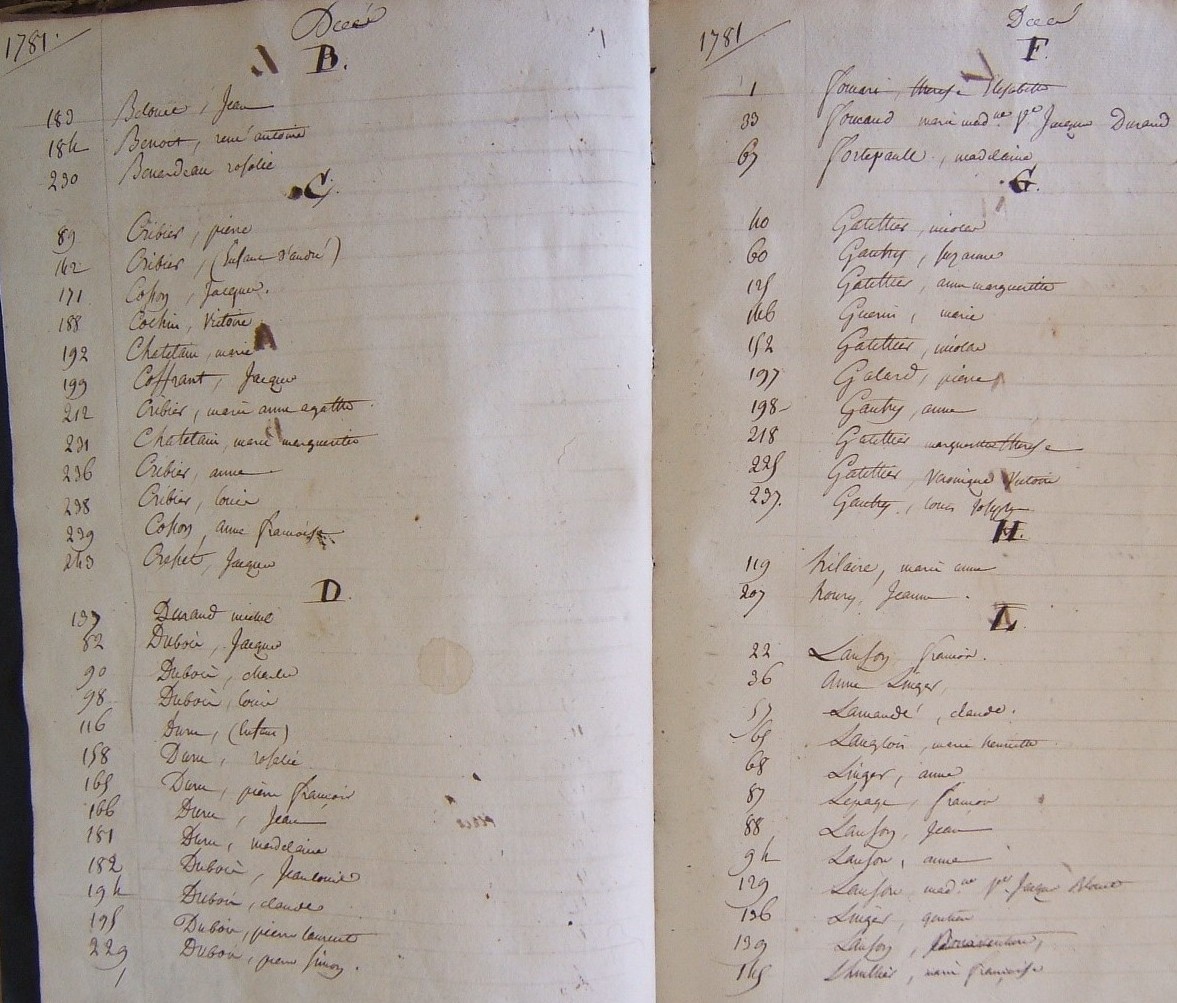 1781.
Décès
B.
183 Belouce, Jean
184 Benoit, rené antoine
230 Benardeau rosalie
C.
89 Cribier, pierre
142 Cribier, (Enfant d'andré)
171 Cosson, Jacques.
188 Cochin, Victoire
192 Chatelain, marie
199 Coffrant, Jacques
212 Cribier, marie anne agathe
231 Chatelain, marie marguerite
236 Cribier, anne
238 Cribier, louis
239 Cosson, anne francoise
243 Jacques
D.
137 Durand michel
82 Dubois, Jacques
90 Dubois, charles
98 Dubois, louis
116 Duru, (Enfant)
158 Duru, rosalie
165 Duru, pierre francois
166 Duru, Jean
181 Duru, madelaine
182 Dubois, Jean louis
194 Dubois, claude
195 Dubois, pierre laurent
229 Dubois, pierre simon.
1781
Décès
F.
1 therese Elisabeth
33 Foucaud marie mad.ne Ve Jacques Durand
67 Fortepaule, madelaine
G.
40 Gatellier, nicolas
60 Gautry, suzanne
125 Gatellier, anne marguerite
146 Guerin, marie
152 Gatellier, nicolas
197 Galard, pierre
198 Gautry, anne
218 Gatellier marguerite therese
225 Gatellier, Véronique Victoire
237. Gautry, louis Joseph
H.
119 hilaire, marie anne
207 houry, Jeanne.
L.
22 Lanson francois.
36 Anne Linger,
57 Lamandé, claude.
65 Langlois, marie henriette
68 Linger, anne
87 Lepage, francois
88 Lanson, Jean
94 Lanson, anne
129 Lanson mad.ne Ve Jacques Belouce
136 Linger, gentien
139 Lanson, Bonaventure,
145 marie francoise